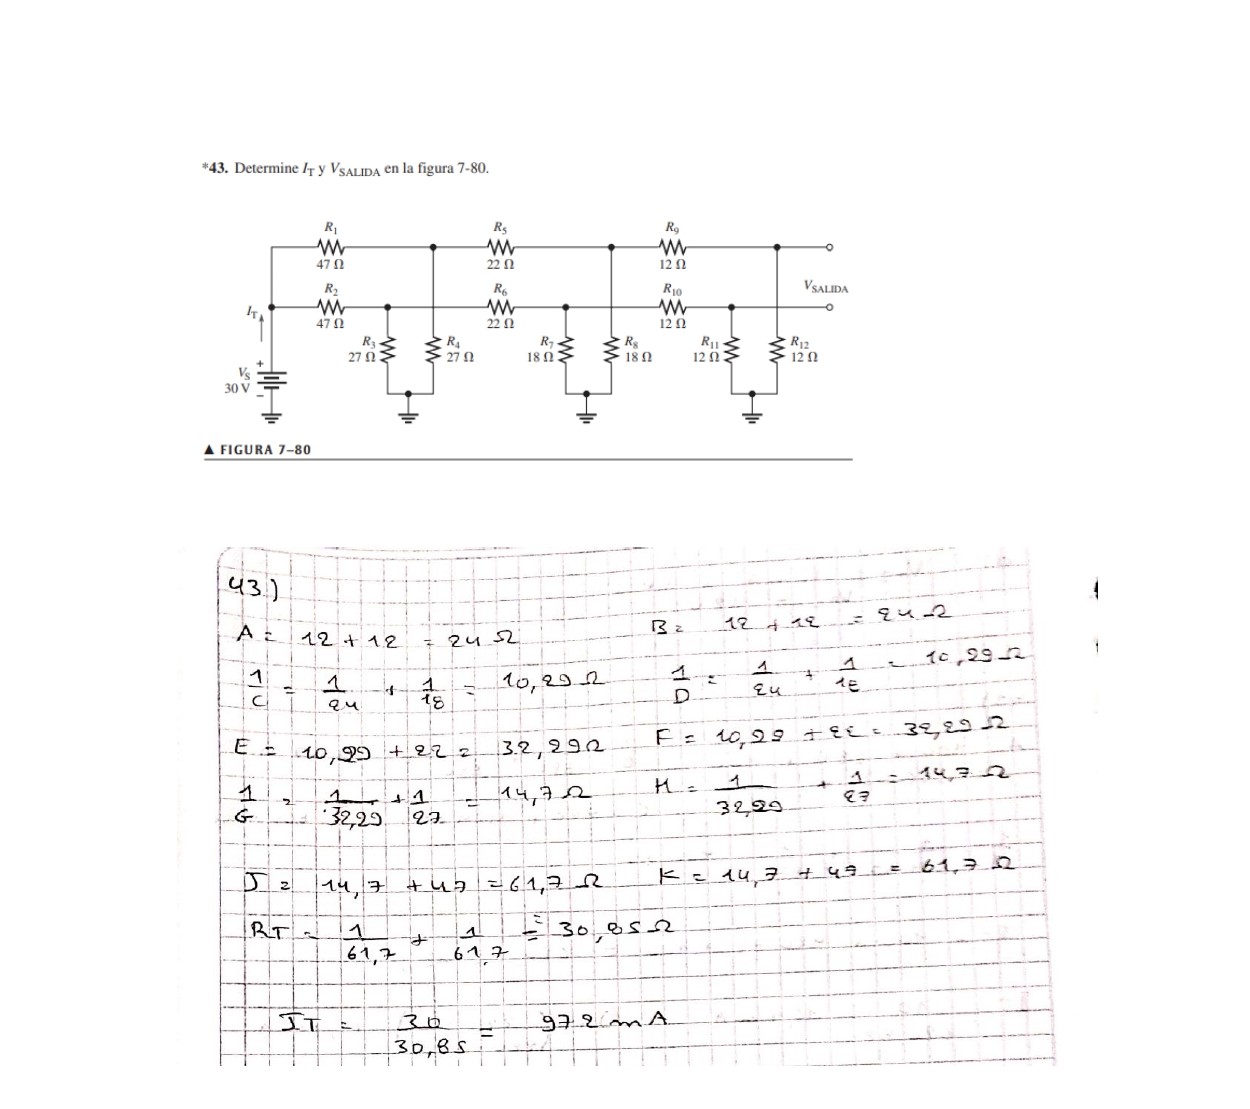 *43. Determine IT y VSALIDA en la figura 7-80.
R1 R5 R9
47 Ω 22 Ω 12 Ω
R2 R6 R10 VSALIDA
IT
47 Ω 22 Ω 12 Ω
R3 R4 R7 R8 R11 R12
27 Ω 27 Ω 18 Ω 18 Ω 12 Ω 12 Ω
+
VS
30 V
−
▲ FIGURA 7–80
43)
A = 12 + 12 = 24 Ω B = 12 + 12 = 24 Ω
1/C = 1/24 + 1/18 = 10,29 Ω 1/D = 1/24 + 1/18 = 10,29 Ω
E = 10,29 + 22 = 32,29 Ω F = 10,29 + 22 = 32,29 Ω
1/G = 1/32,29 + 1/27 = 14,7 Ω H = 1/32,29 + 1/27 = 14,7 Ω
J = 14,7 + 47 = 61,7 Ω K = 14,7 + 47 = 61,7 Ω
RT = 1/61,7 + 1/61,7 = 30,85 Ω
IT = 30/30,85 = 972 mA